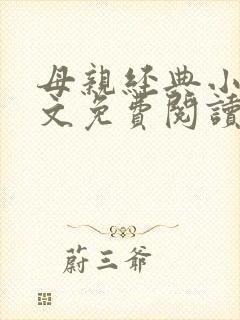 母親經典小
文免費閱讀
蔚三爺